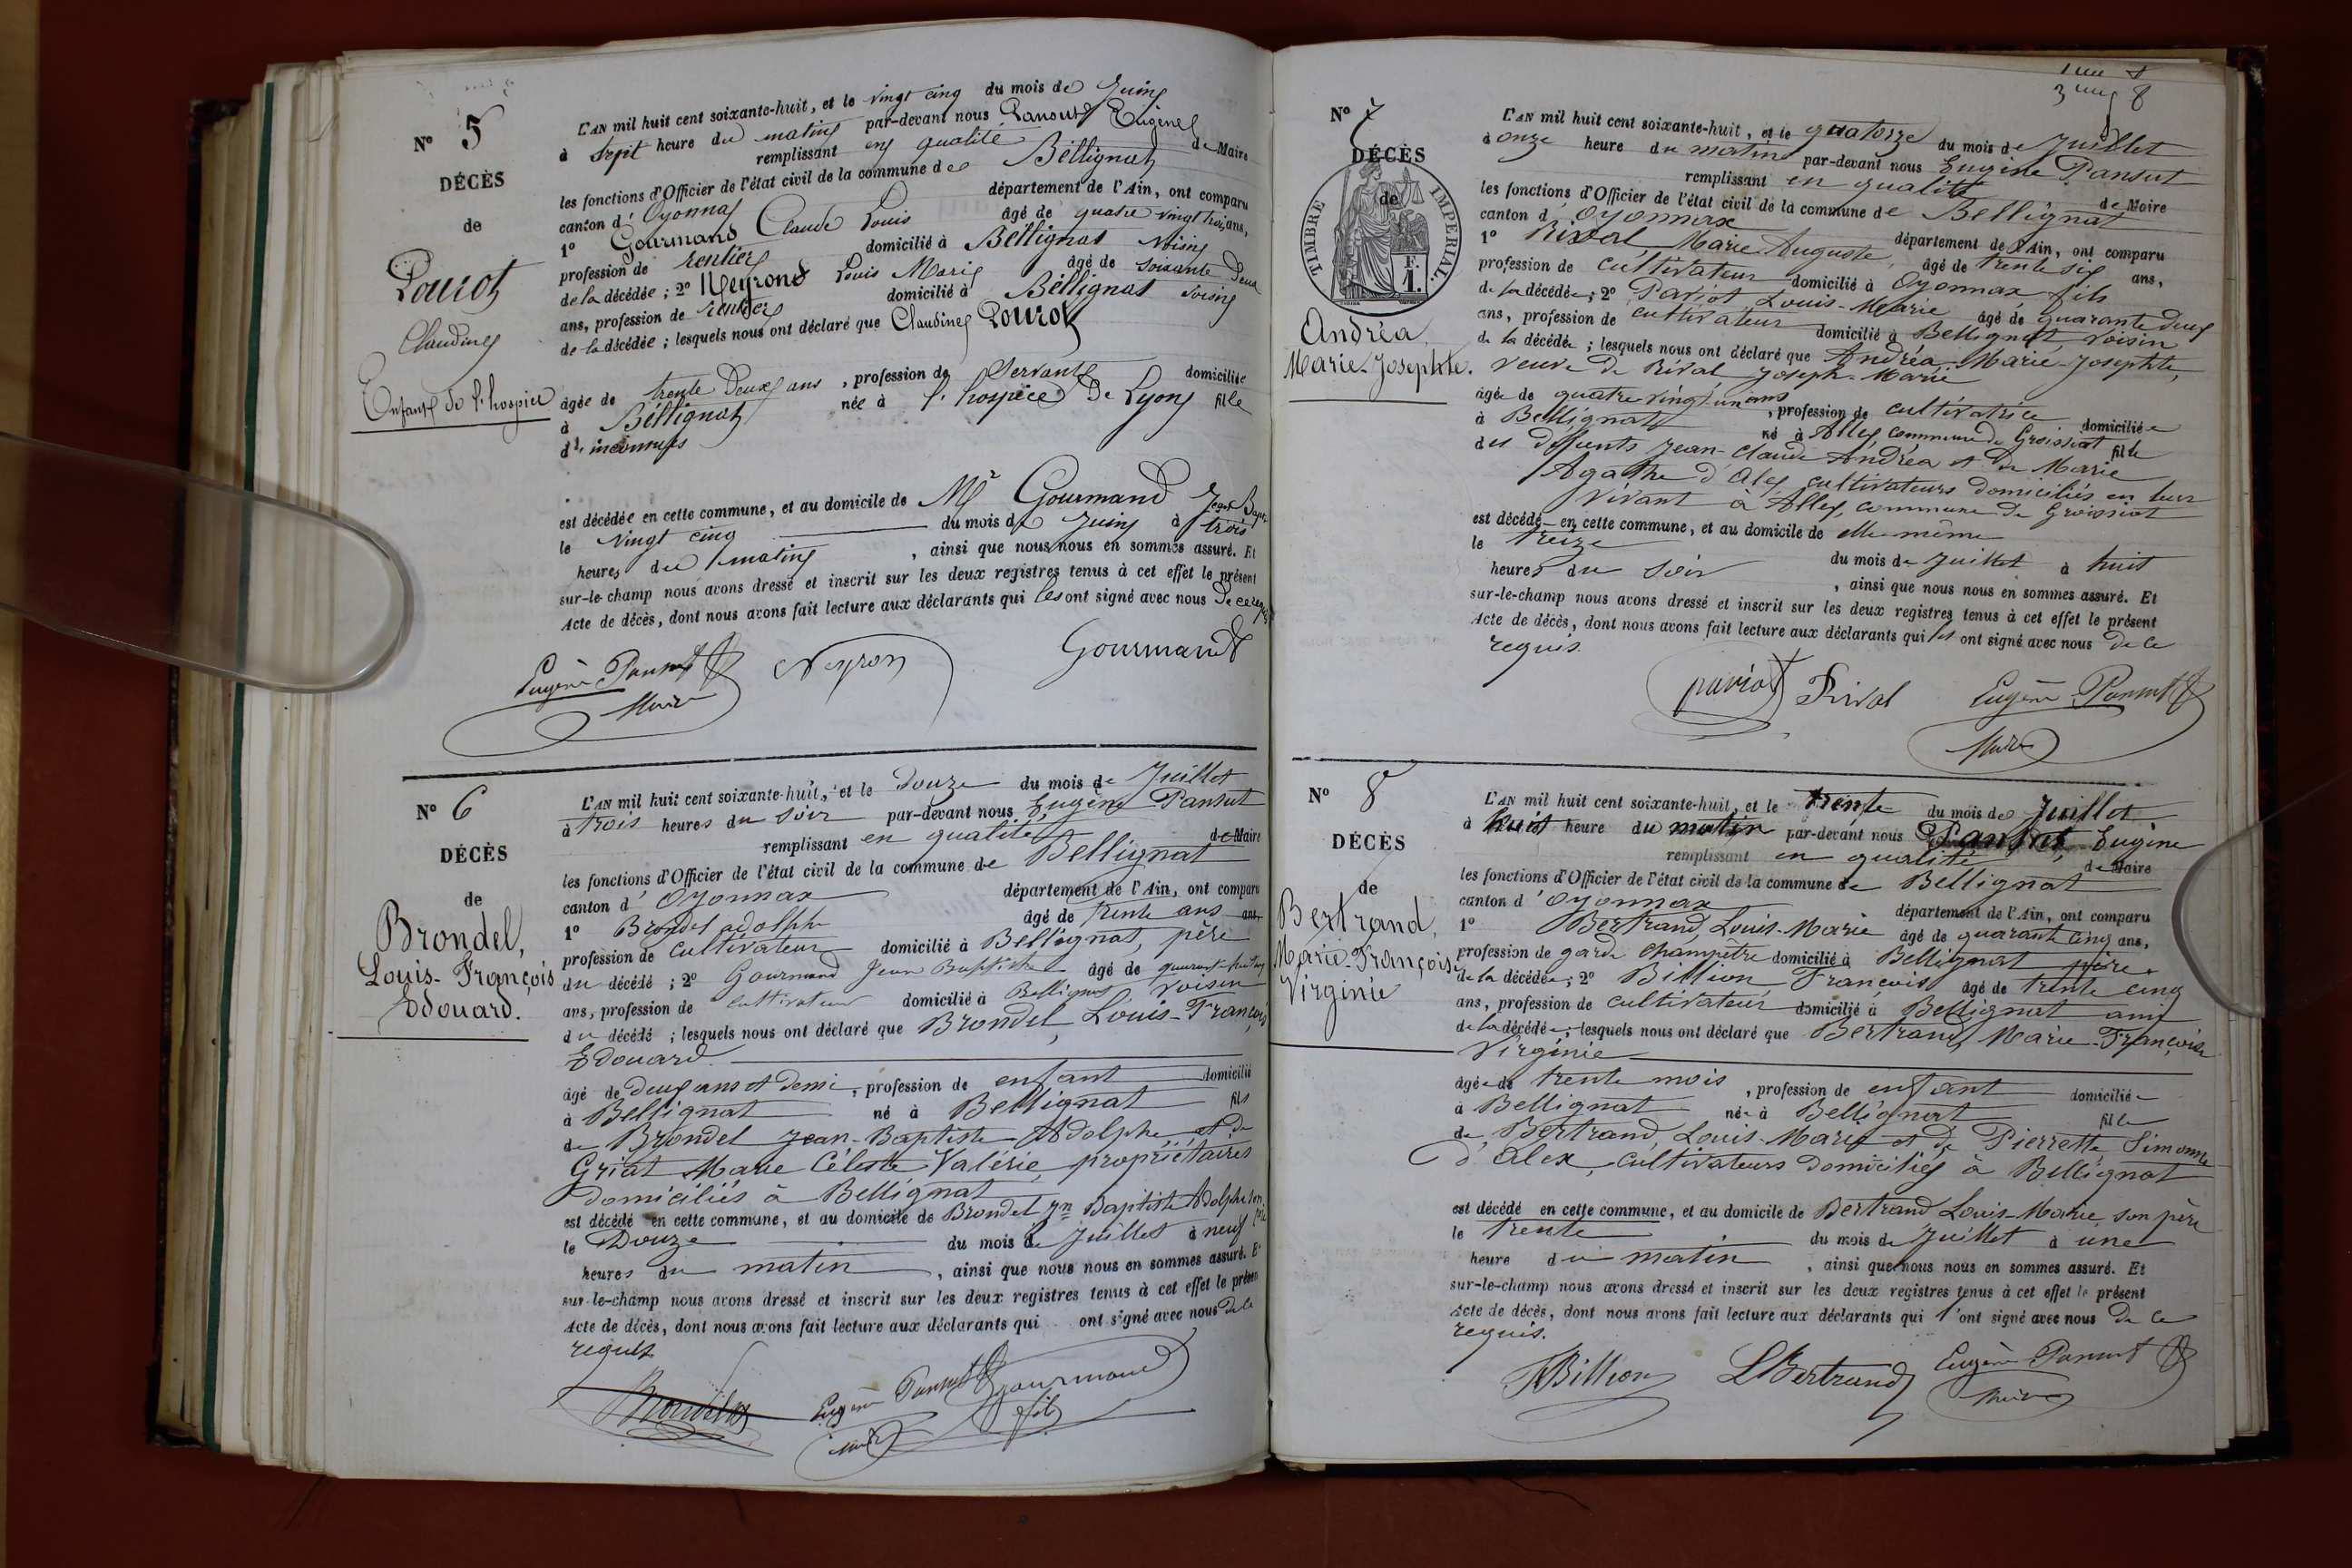 N° 5
DÉCÈS
de
Pourot
Claudine
Enfant de l'hospice
L'AN mil huit cent soixante-huit, et le vingt cinq du mois de Juin
à Sept heure du matin par-devant nous Pansut Eugène
remplissant en qualité de Maire
les fonctions d'Officier de l'état civil de la commune de Béllignat
canton d'Oyonnax département de l'Ain, ont comparu
1° Gourmand Claude Louis âgé de quatre vingt trois ans,
profession de rentier domicilié à Béllignat voisin
de la décédée ; 2° Neyrond Louis Marie âgé de soixante deux
ans, profession de rentier domicilié à Béllignat voisin
de la décédée ; lesquels nous ont déclaré que Claudine Pourot
âgée de trente deux ans, profession de Servante domiciliée
à Béllignat née à l'hospice de Lyon fille
d'inconnus
est décédée en cette commune, et au domicile de Mr Gourmand Jean Bapte
le vingt cinq du mois de Juin à trois
heures du matin, ainsi que nous nous en sommes assuré. Et
sur-le-champ nous avons dressé et inscrit sur les deux registres tenus à cet effet le présent
Acte de décès, dont nous avons fait lecture aux déclarants qui les ont signé avec nous De ce requis
Eugène Pansut Neyron Gourmand
Maire
N° 6
DÉCÈS
de
Brondel,
Louis-François
Edouard.
L'AN mil huit cent soixante-huit, et le douze du mois de Juillet
à trois heures du soir par-devant nous Eugène Pansut
remplissant en qualité de Maire
les fonctions d'Officier de l'état civil de la commune de Bellignat
canton d'Oyonnax département de l'Ain, ont comparu
1° Brondel adolphe âgé de trente ans ans,
profession de cultivateur domicilié à Bellignat, père
du décédé ; 2° Gourmand Jean Baptiste âgé de quarante huit
ans, profession de cultivateur domicilié à Bellignat voisin
du décédé ; lesquels nous ont déclaré que Brondel, Louis-François
Edouard
âgé de deux ans et demi, profession de enfant domicilié
à Bellignat né à Bellignat fils
de Brondel Jean-Baptiste Adolphe et de
Griat Marie Céleste Valérie, propriétaires
domiciliés à Bellignat
est décédé en cette commune, et au domicile de Brondel Jn Baptiste Adolphe son père
le Douze du mois de Juillet à neuf
heures du matin, ainsi que nous nous en sommes assuré. Et
sur-le-champ nous avons dressé et inscrit sur les deux registres tenus à cet effet le présent
Acte de décès, dont nous avons fait lecture aux déclarants qui ont signé avec nous de ce
requis
Brondel Eugène Pansut Gourmand
fils
maire
N° 7
DÉCÈS
de
TIMBRE IMPÉRIAL.
F.
1.
Andréa,
Marie-Josephte.
L'AN mil huit cent soixante-huit, et le quatorze du mois de Juillet
à onze heure du matin par-devant nous Eugène Pansut
remplissant en qualité de Maire
les fonctions d'Officier de l'état civil de la commune de Bellignat
canton d'Oyonnax département de l'Ain, ont comparu
1° Rival, Marie Auguste, âgé de trente six ans,
profession de cultivateur domicilié à Oyonnax fils
de la décédée ; 2° Pariot, Louis-Marie âgé de quarante deux
ans, profession de cultivateur domicilié à Bellignat voisin
de la décédée ; lesquels nous ont déclaré que Andréa Marie-Josephte,
veuve de Rival Joseph-Marie
âgée de quatre vingt un ans, profession de cultivatrice domiciliée
à Bellignat né à Alley commune de Groissiat fille
des défunts Jean-Claude Andréa et de Marie
Agathe d'Aley cultivateurs domiciliés en leur
vivant à Alley, commune de Groissiat
est décédé en cette commune, et au domicile de elle même
le treize du mois de Juillet à huit
heures du soir, ainsi que nous nous en sommes assuré. Et
sur-le-champ nous avons dressé et inscrit sur les deux registres tenus à cet effet le présent
Acte de décès, dont nous avons fait lecture aux déclarants qui les ont signé avec nous de ce
requis.
pariot Rival Eugène Pansut
Maire
N° 8
DÉCÈS
de
Bertrand,
Marie-Françoise
Virginie
L'AN mil huit cent soixante-huit, et le trente du mois de Juillet
à huit heure du matin par-devant nous Pansut, Eugène
remplissant en qualité de Maire
les fonctions d'Officier de l'état civil de la commune de Bellignat
canton d'Oyonnax département de l'Ain, ont comparu
1° Bertrand, Louis-Marie âgé de quarante cinq ans,
profession de garde champêtre domicilié à Bellignat père
de la décédée ; 2° Billion François âgé de trente cinq
ans, profession de cultivateur domicilié à Bellignat ami
de la décédée ; lesquels nous ont déclaré que Bertrand Marie-Françoise
Virginie
âgée de trente mois, profession de enfant domiciliée
à Bellignat née à Bellignat fille
de Bertrand, Louis-Marie et de Pierrette Simonne
d'Alex, cultivateurs domiciliés à Bellignat
est décédé en cette commune, et au domicile de Bertrand Louis-Marie son père
le trente du mois de Juillet à une
heure du matin, ainsi que nous nous en sommes assuré. Et
sur-le-champ nous avons dressé et inscrit sur les deux registres tenus à cet effet le présent
Acte de décès, dont nous avons fait lecture aux déclarants qui l'ont signé avec nous de ce
requis.
F Billion L Bertrand Eugène Pansut
Maire